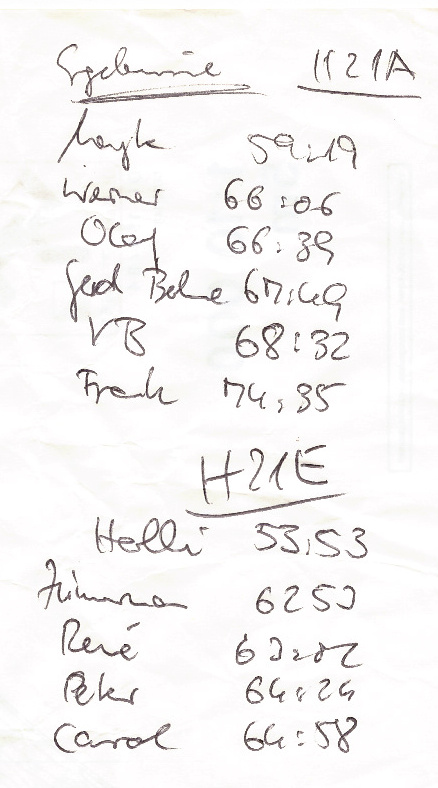 Ergebnisse H21A
Mayk 59:19
Werner 66:06
Olaf 66:39
Gerd Bohne 67:49
VB 68:32
Frank 74:35
H21E
Holli 53:53
62 53
René
Peter 64:24
Carol 64:58